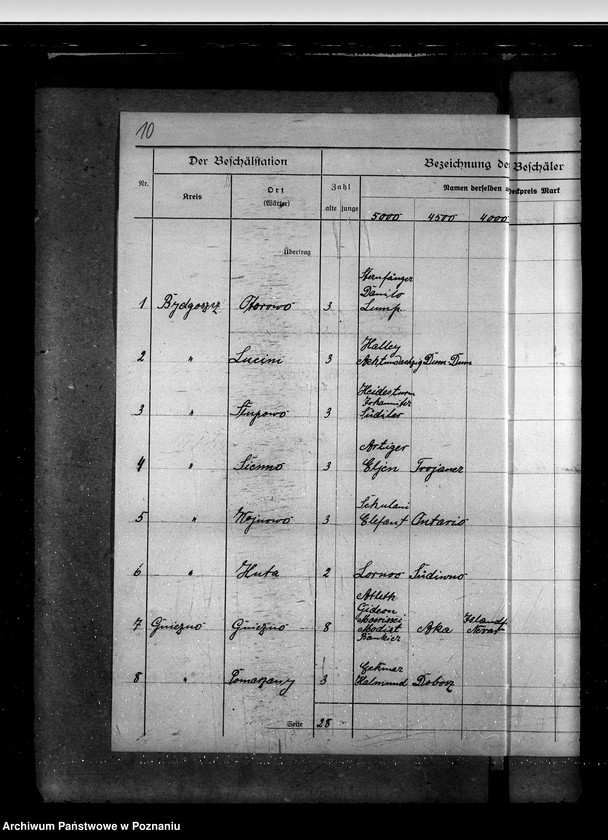 10
Der Beschälstation
Bezeichnung der Beschäler
Nr.
Kreis
Ort
(Wärter)
Zahl
alte junge
Namen derselben
Deckpreis Mark
5000 4500 4000
Übertrag
Sternfänger
Danilo
1 Bydgoszcz Otorowo 3 Lump
Halley
2 " Lucim 3 Achtundachtzig Dum Dum
Heidesturm
Johanniter
3 " Słupowo 3 Südilor
Artiger
4 " Sienno 3 Eljen Trojaner
Schulani
5 " Wojnowo 3 Elefant Ontario
6 " Huta 2 Lornoo Südinno
Athlet
Gideon
7 Gniezno Gniezno 8 Modist Aka
Bankier
8 " Pomarzany 3 Halmund Dobosz
Seite 28
Archiwum Państwowe w Poznaniu